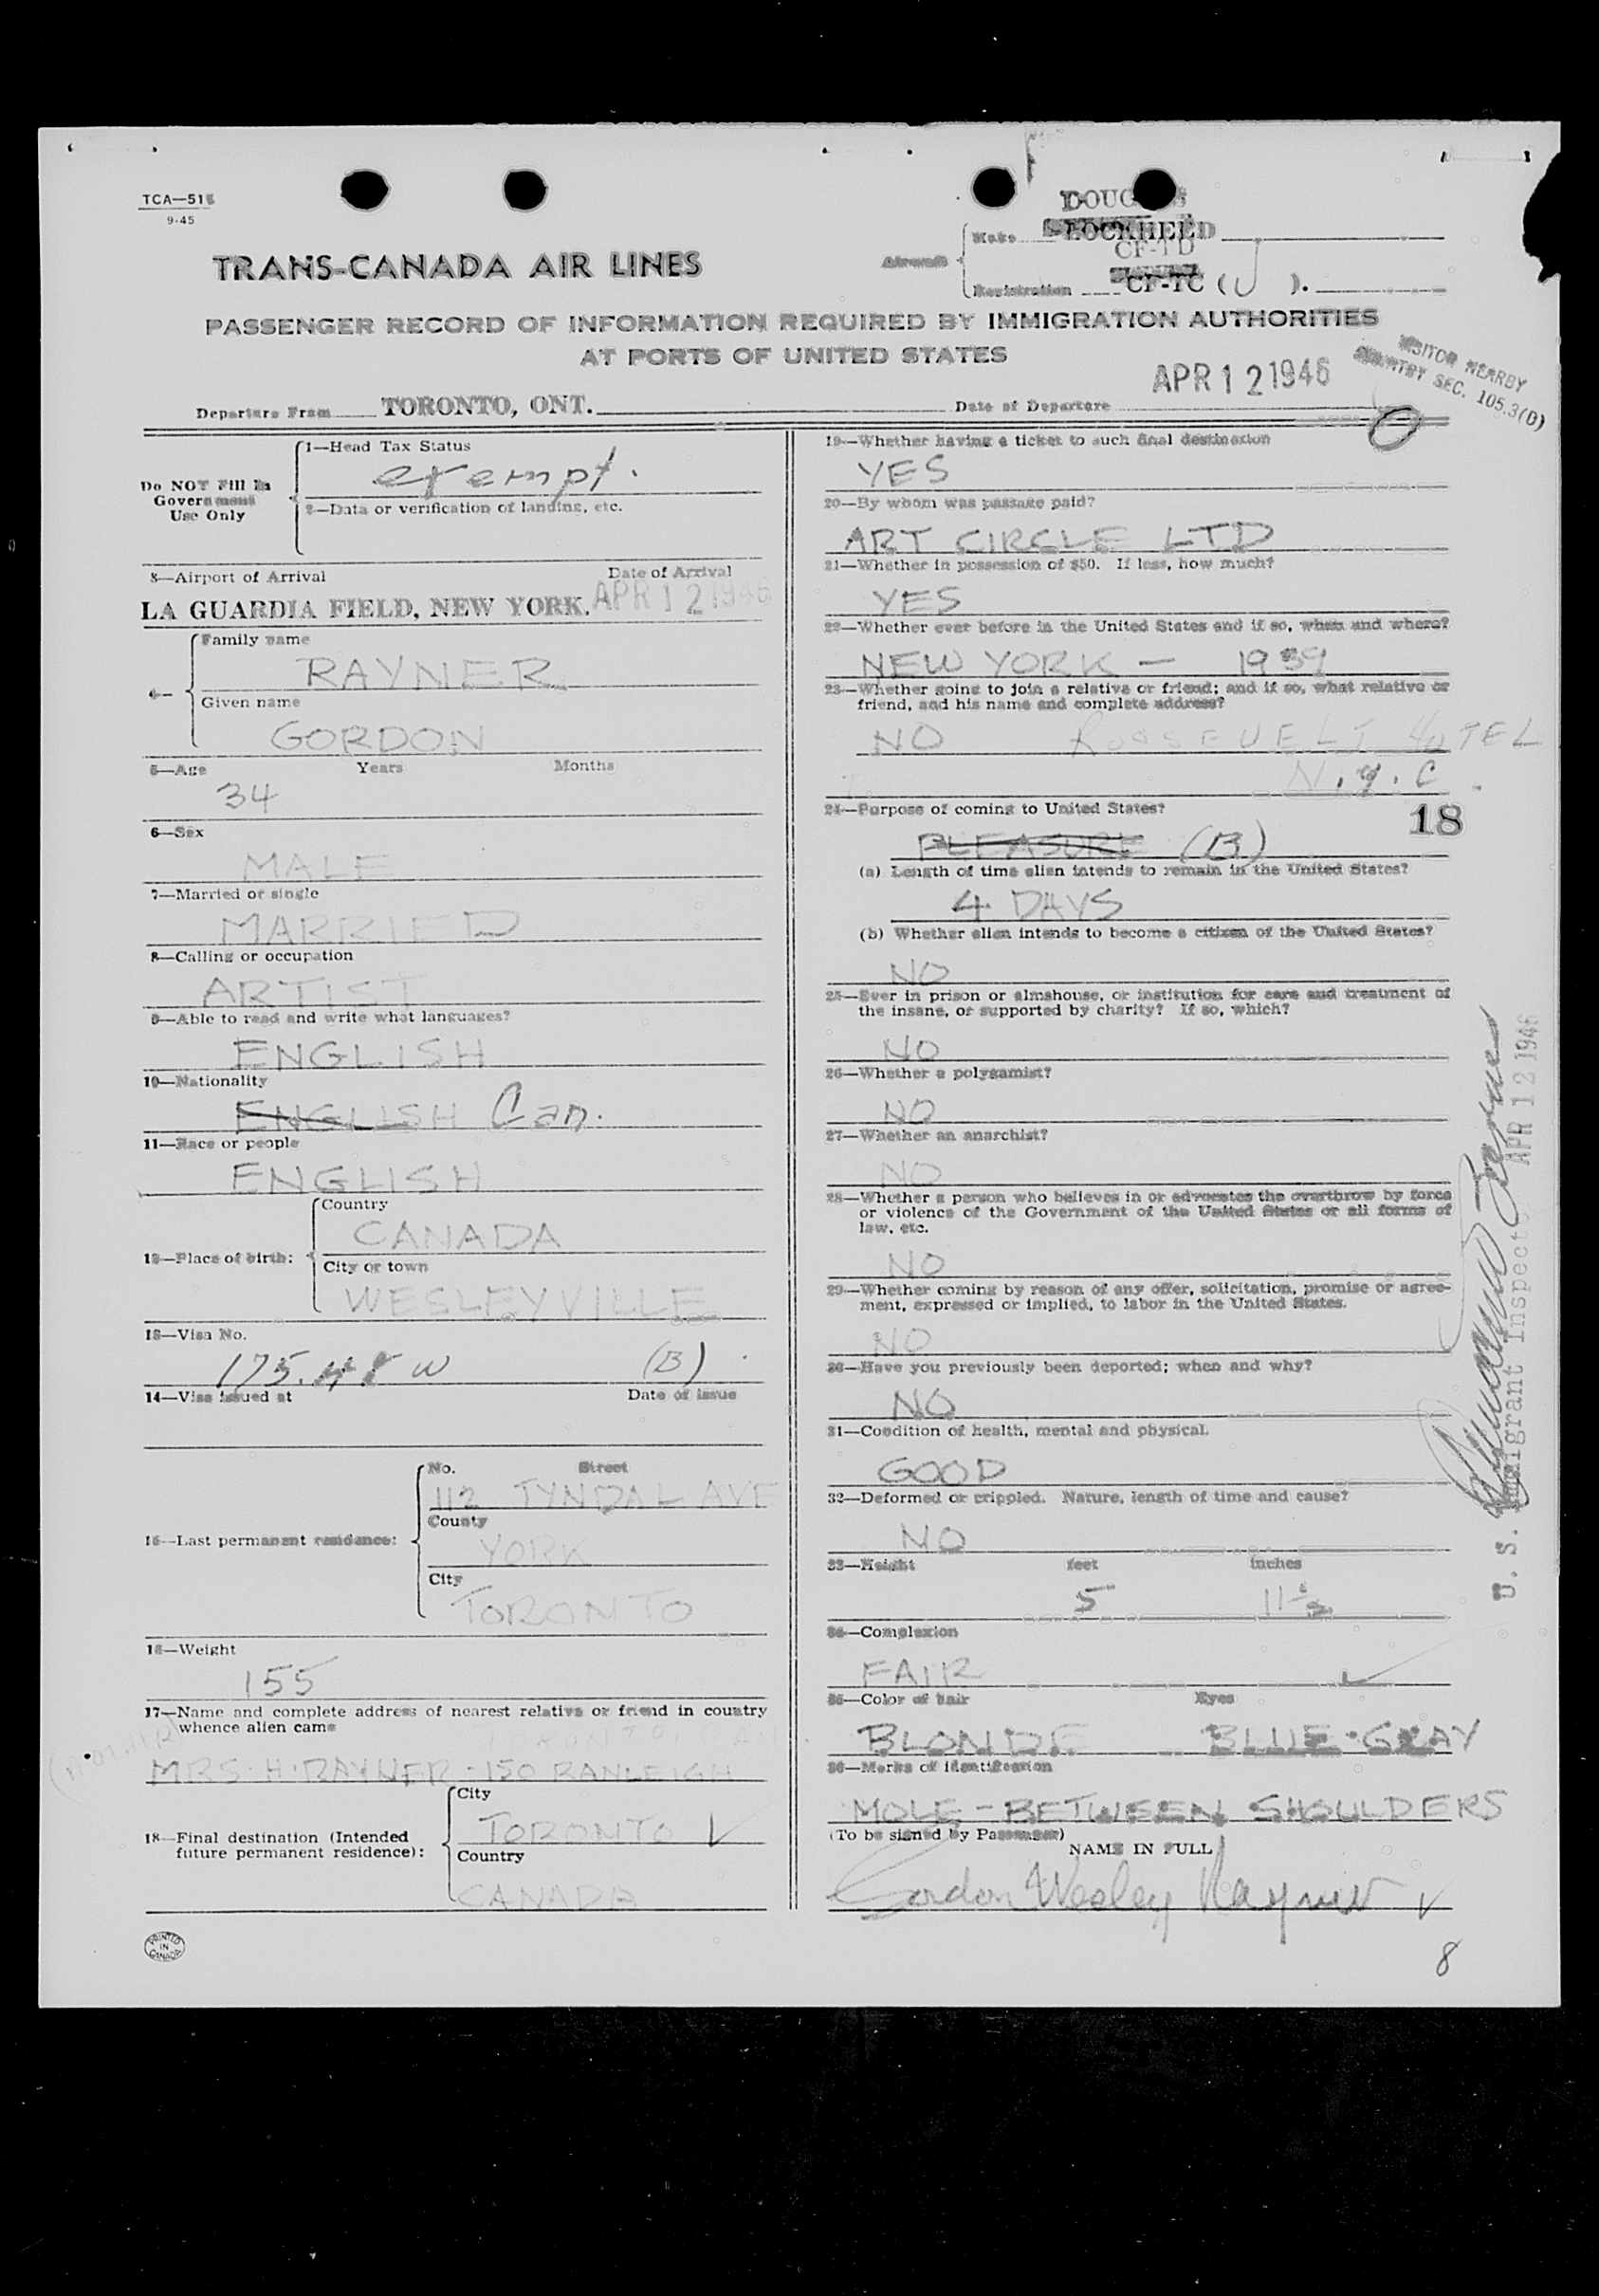 TCA—51
9-45
TRANS-CANADA AIR LINES
DOUGLAS
Aircraft
Make LOCKHEED
CF-TD
Registration CF-TC (J).
PASSENGER RECORD OF INFORMATION REQUIRED BY IMMIGRATION AUTHORITIES
AT PORTS OF UNITED STATES
VISITOR NEARBY
COUNTRY SEC. 105.3(B)
APR 12 1946
Departure From TORONTO, ONT. Date of Departure
Do NOT Fill In
Government
Use Only
1—Head Tax Status
exempt.
2—Data or verification of landing, etc.
3—Airport of Arrival Date of Arrival
LA GUARDIA FIELD, NEW YORK. APR 12 1946
4—
Family name
RAYNER
Given name
GORDON
5—Age Years Months
34
6—Sex
MALE
7—Married or single
MARRIED
8—Calling or occupation
ARTIST
9—Able to read and write what languages?
ENGLISH
10—Nationality
ENGLISH Can.
11—Race or people
ENGLISH
12—Place of birth:
Country
CANADA
City or town
WESLEYVILLE
13—Visa No.
175. W (B)
14—Visa issued at Date of issue
15—Last permanent residence:
No. Street
112 TYNDAL AVE
County
YORK
City
TORONTO
16—Weight
155
17—Name and complete address of nearest relative or friend in country
whence alien came
(MOTHER) TORONTO
MRS. H. RAYNER - 150 RANLEIGH
18—Final destination (Intended
future permanent residence):
City
TORONTO
Country
CANADA
PRINTED
IN
CANADA
19—Whether having a ticket to such final destination
YES
20—By whom was passage paid?
ART CIRCLE LTD
21—Whether in possession of $50. If less, how much?
YES
22—Whether ever before in the United States and if so, when and where?
NEW YORK — 1939
23—Whether going to join a relative or friend; and if so, what relative or
friend, and his name and complete address?
NO ROOSEVELT HOTEL
N.Y.C.
24—Purpose of coming to United States?
18
PLEASURE (B)
(a) Length of time alien intends to remain in the United States?
4 DAYS
(b) Whether alien intends to become a citizen of the United States?
NO
25—Ever in prison or almshouse, or institution for care and treatment of
the insane, or supported by charity? If so, which?
NO
26—Whether a polygamist?
NO
27—Whether an anarchist?
NO
28—Whether a person who believes in or advocates the overthrow by force
or violence of the Government of the United States or all forms of
law, etc.
NO
29—Whether coming by reason of any offer, solicitation, promise or agree-
ment, expressed or implied, to labor in the United States.
NO
30—Have you previously been deported; when and why?
NO
31—Condition of health, mental and physical.
GOOD
32—Deformed or crippled. Nature, length of time and cause?
NO
33—Height feet inches
5 11½
34—Complexion
FAIR
35—Color of hair Eyes
BLONDE BLUE-GRAY
36—Marks of identification
MOLE - BETWEEN SHOULDERS
(To be signed by Passenger)
NAME IN FULL
Gordon Wesley Rayner
8
U. S. Immigrant Inspector APR 12 1946